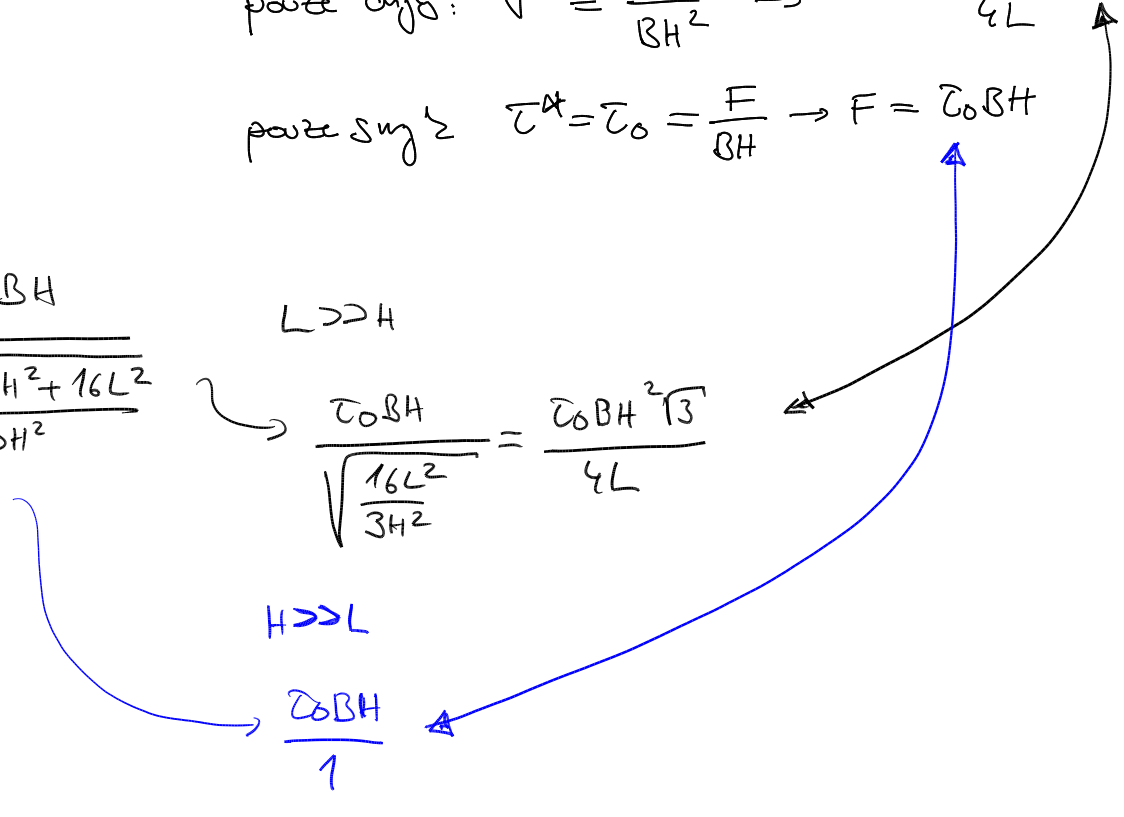 pouze : = BH² 4L
pouze smyk τ* = τ₀ = F/BH → F = τ₀BH
BH
L >> H
H² + 16L²
H²
τ₀BH / √(16L²/3H²) = τ₀BH²√3 / 4L
H >> L
τ₀BH / 1